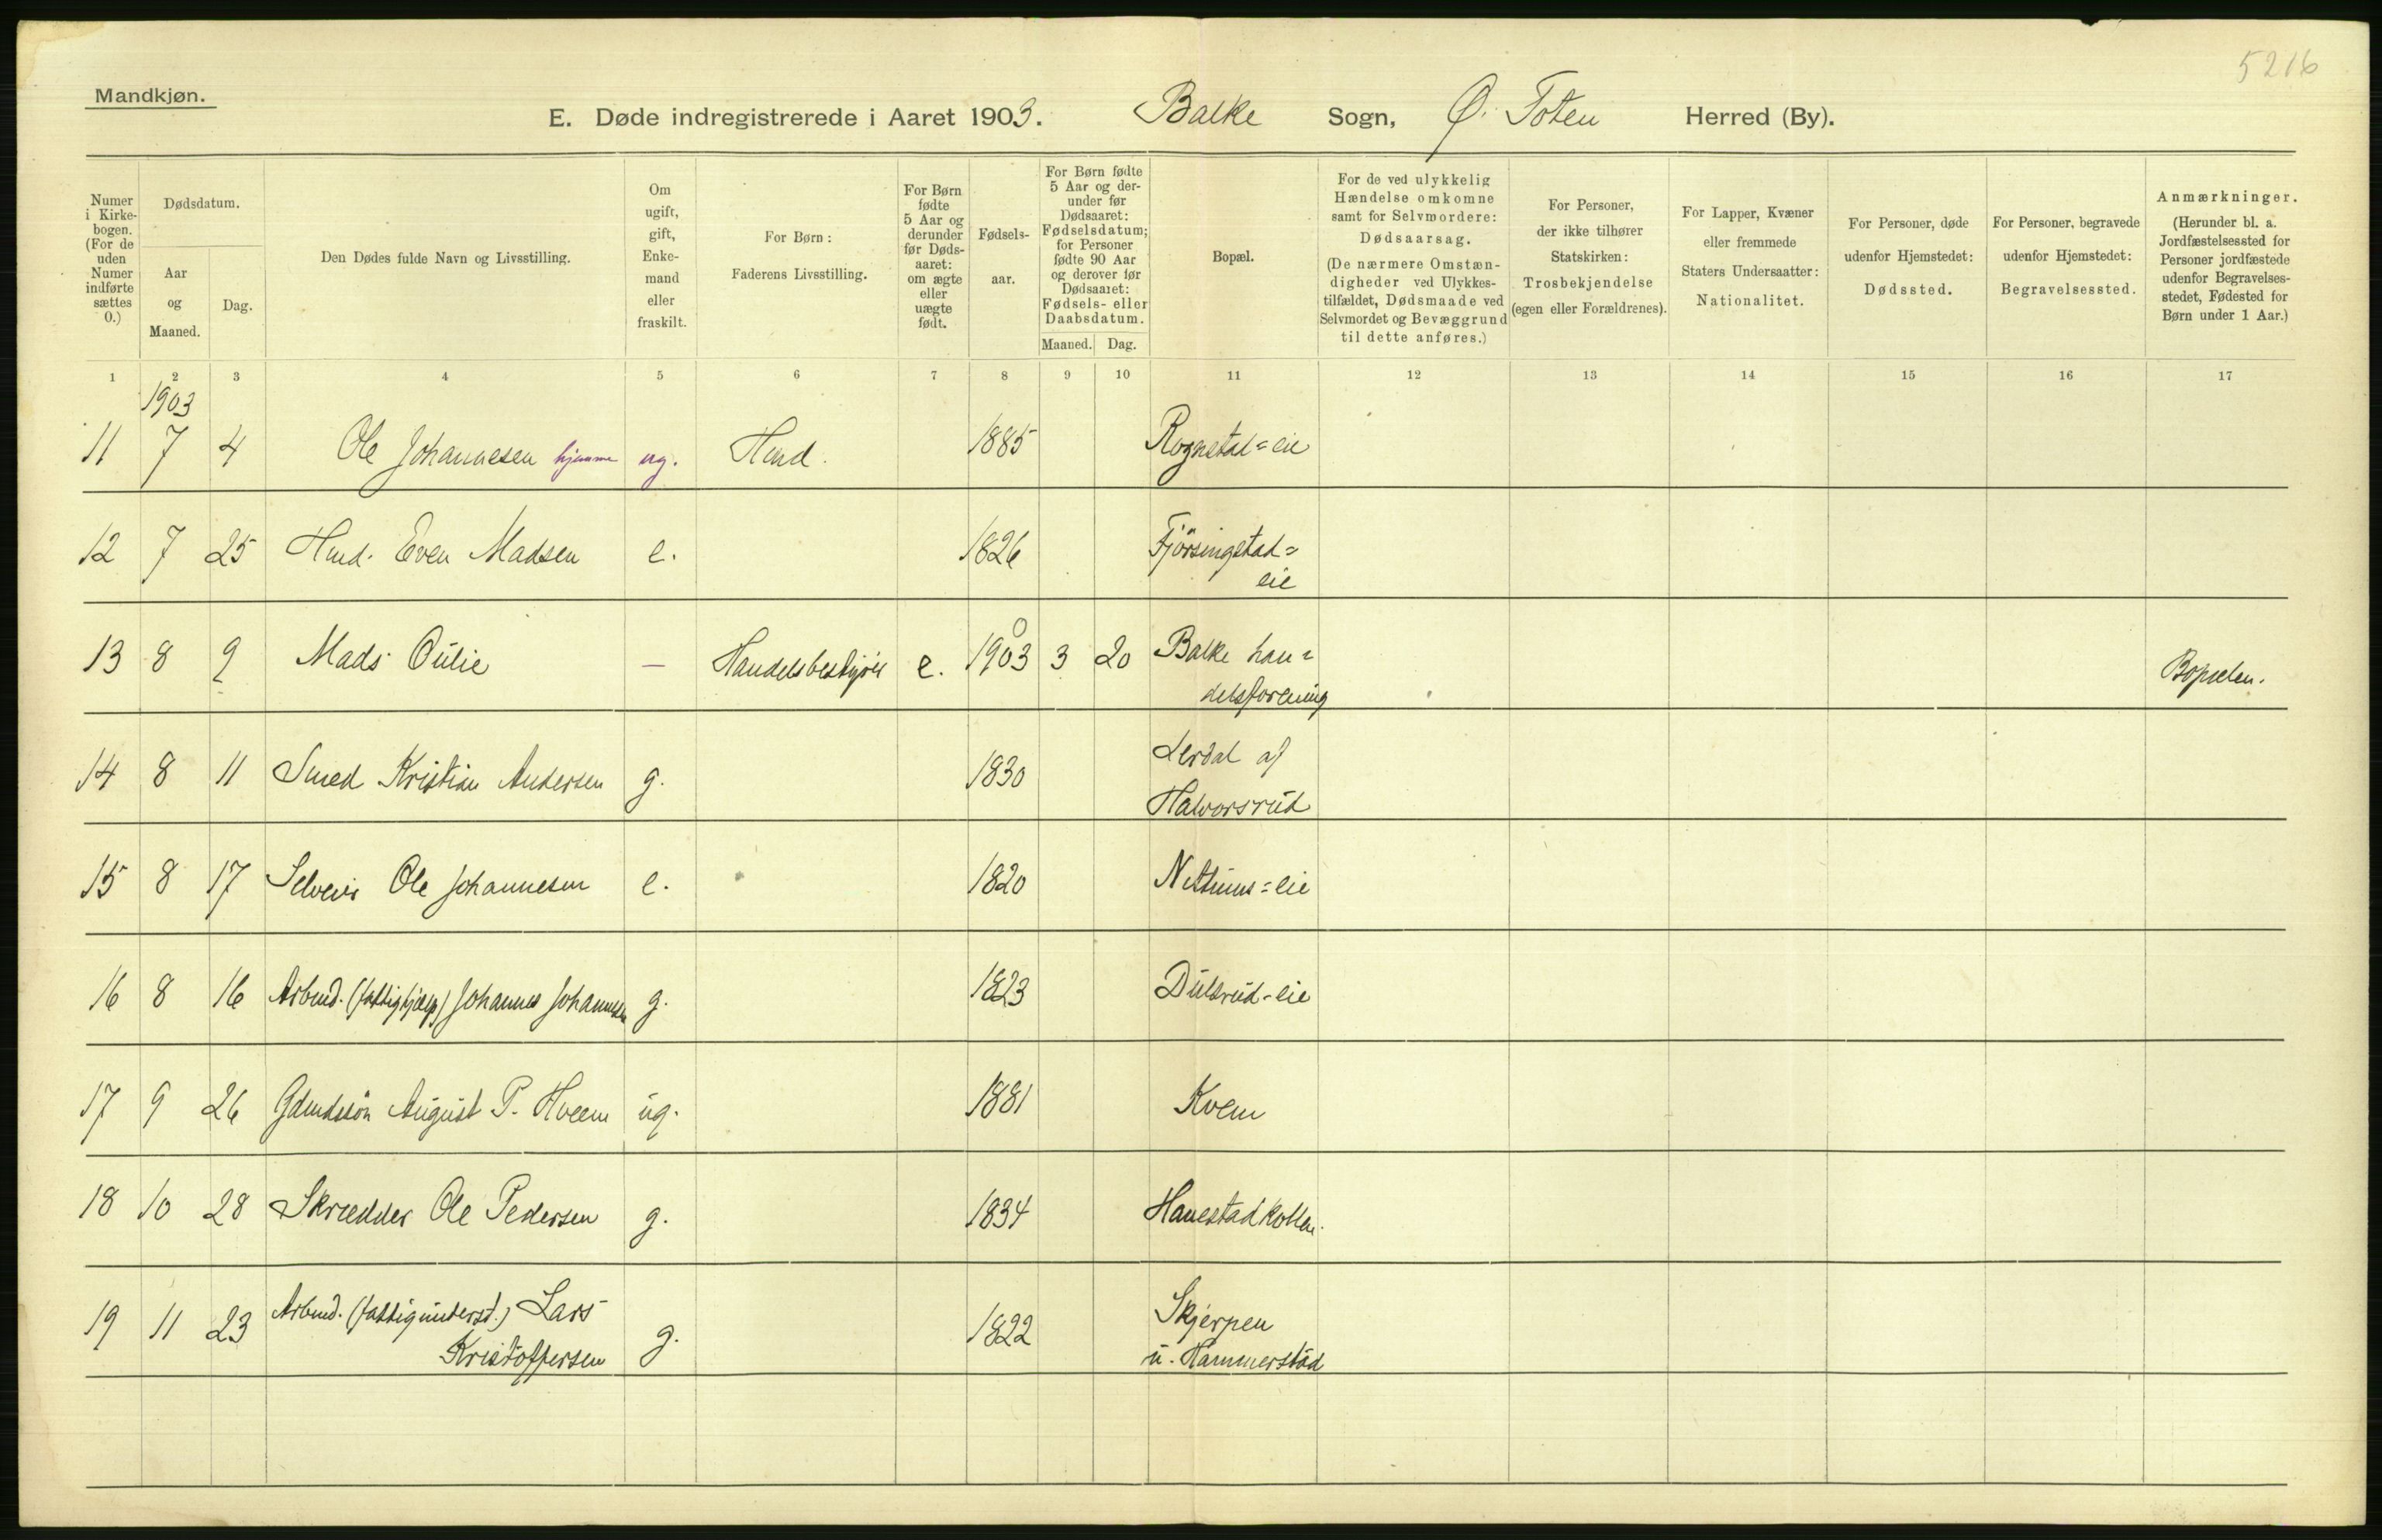 5216
Mandkjøn.
E. Døde indregistrerede i Aaret 1903. Balke Sogn, Ø. Toten Herred (By).
Numer i Kirkebogen. (For de uden Numer indførte sættes 0.)
Dødsdatum.
Aar og Maaned.
Dag.
Den Dødes fulde Navn og Livsstilling.
Om ugift, gift, Enkemand eller fraskilt.
For Børn: Faderens Livsstilling.
For Børn fødte 5 Aar og derunder før Dødsaaret: om ægte eller uægte født.
Fødselsaar.
For Børn fødte 5 Aar og derunder før Dødsaaret: Fødselsdatum; for Personer fødte 90 Aar og derover før Dødsaaret: Fødsels- eller Daabsdatum.
Maaned. Dag.
Bopæl.
For de ved ulykkelig Hændelse omkomne samt for Selvmordere: Dødsaarsag. (De nærmere Omstændigheder ved Ulykkestilfældet, Dødsmaade ved Selvmordet og Bevæggrund til dette anføres.)
For Personer, der ikke tilhører Statskirken: Trosbekjendelse (egen eller Forældrenes).
For Lapper, Kvæner eller fremmede Staters Undersaatter: Nationalitet.
For Personer, døde udenfor Hjemstedet: Dødssted.
For Personer, begravede udenfor Hjemstedet: Begravelsessted.
Anmærkninger. (Herunder bl. a. Jordfæstelsessted for Personer jordfæstede udenfor Begravelsesstedet, Fødested for Børn under 1 Aar.)
1 2 3 4 5 6 7 8 9 10 11 12 13 14 15 16 17
1903
11 7 4 Ole Johannesen hjemme ug. Hmd. 1885 Rognstad=eie
12 7 25 Hmd. Even Madsen e. 1826 Fjörsingstad=
eie
13 8 9 Mads Oulie — Handelsbestyrer e. 1903 0 3 20 Balke han=
delsforening Bopælen.
14 8 11 Smed Kristian Andersen g. 1830 Lerdal af
Halvorsrud
15 8 17 Selveier Ole Johannesen e. 1820 Netthuns=eie
16 8 16 Arbmd. (fattighjælp) Johannes Johannesen g. 1823 Dulsrud-eie
17 9 26 Gdmdssön August P. Hveem ug. 1881 Kvem
18 10 28 Skrædder Ole Pedersen g. 1834 Hanestadkollen.
19 11 23 Arbmd. (fattigunderst.) Lars
Kristoffersen g. 1822 Skjerpen
u. Hammerstad